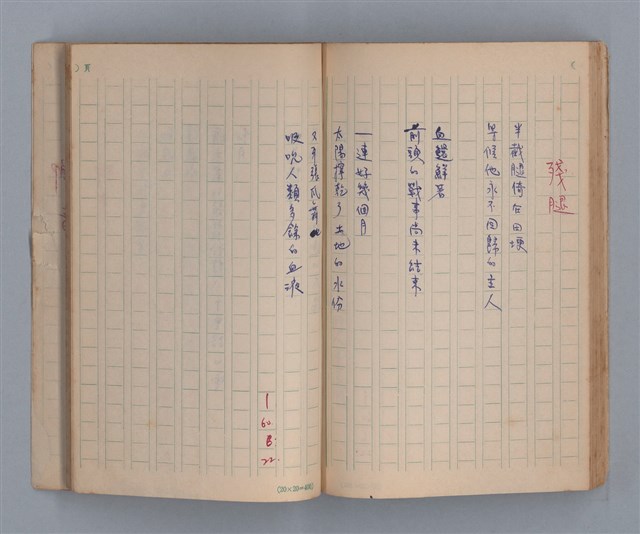 殘腿
半截腿倚在田埂
等候他永不回歸的主人
血還鮮著
前頭的戰事尚未結束
一連好幾個月
太陽擰乾了土地的水份
又平張爪舞
吸吮人類多餘的血液
1
60
8.
22.
(20×20=400)
頁